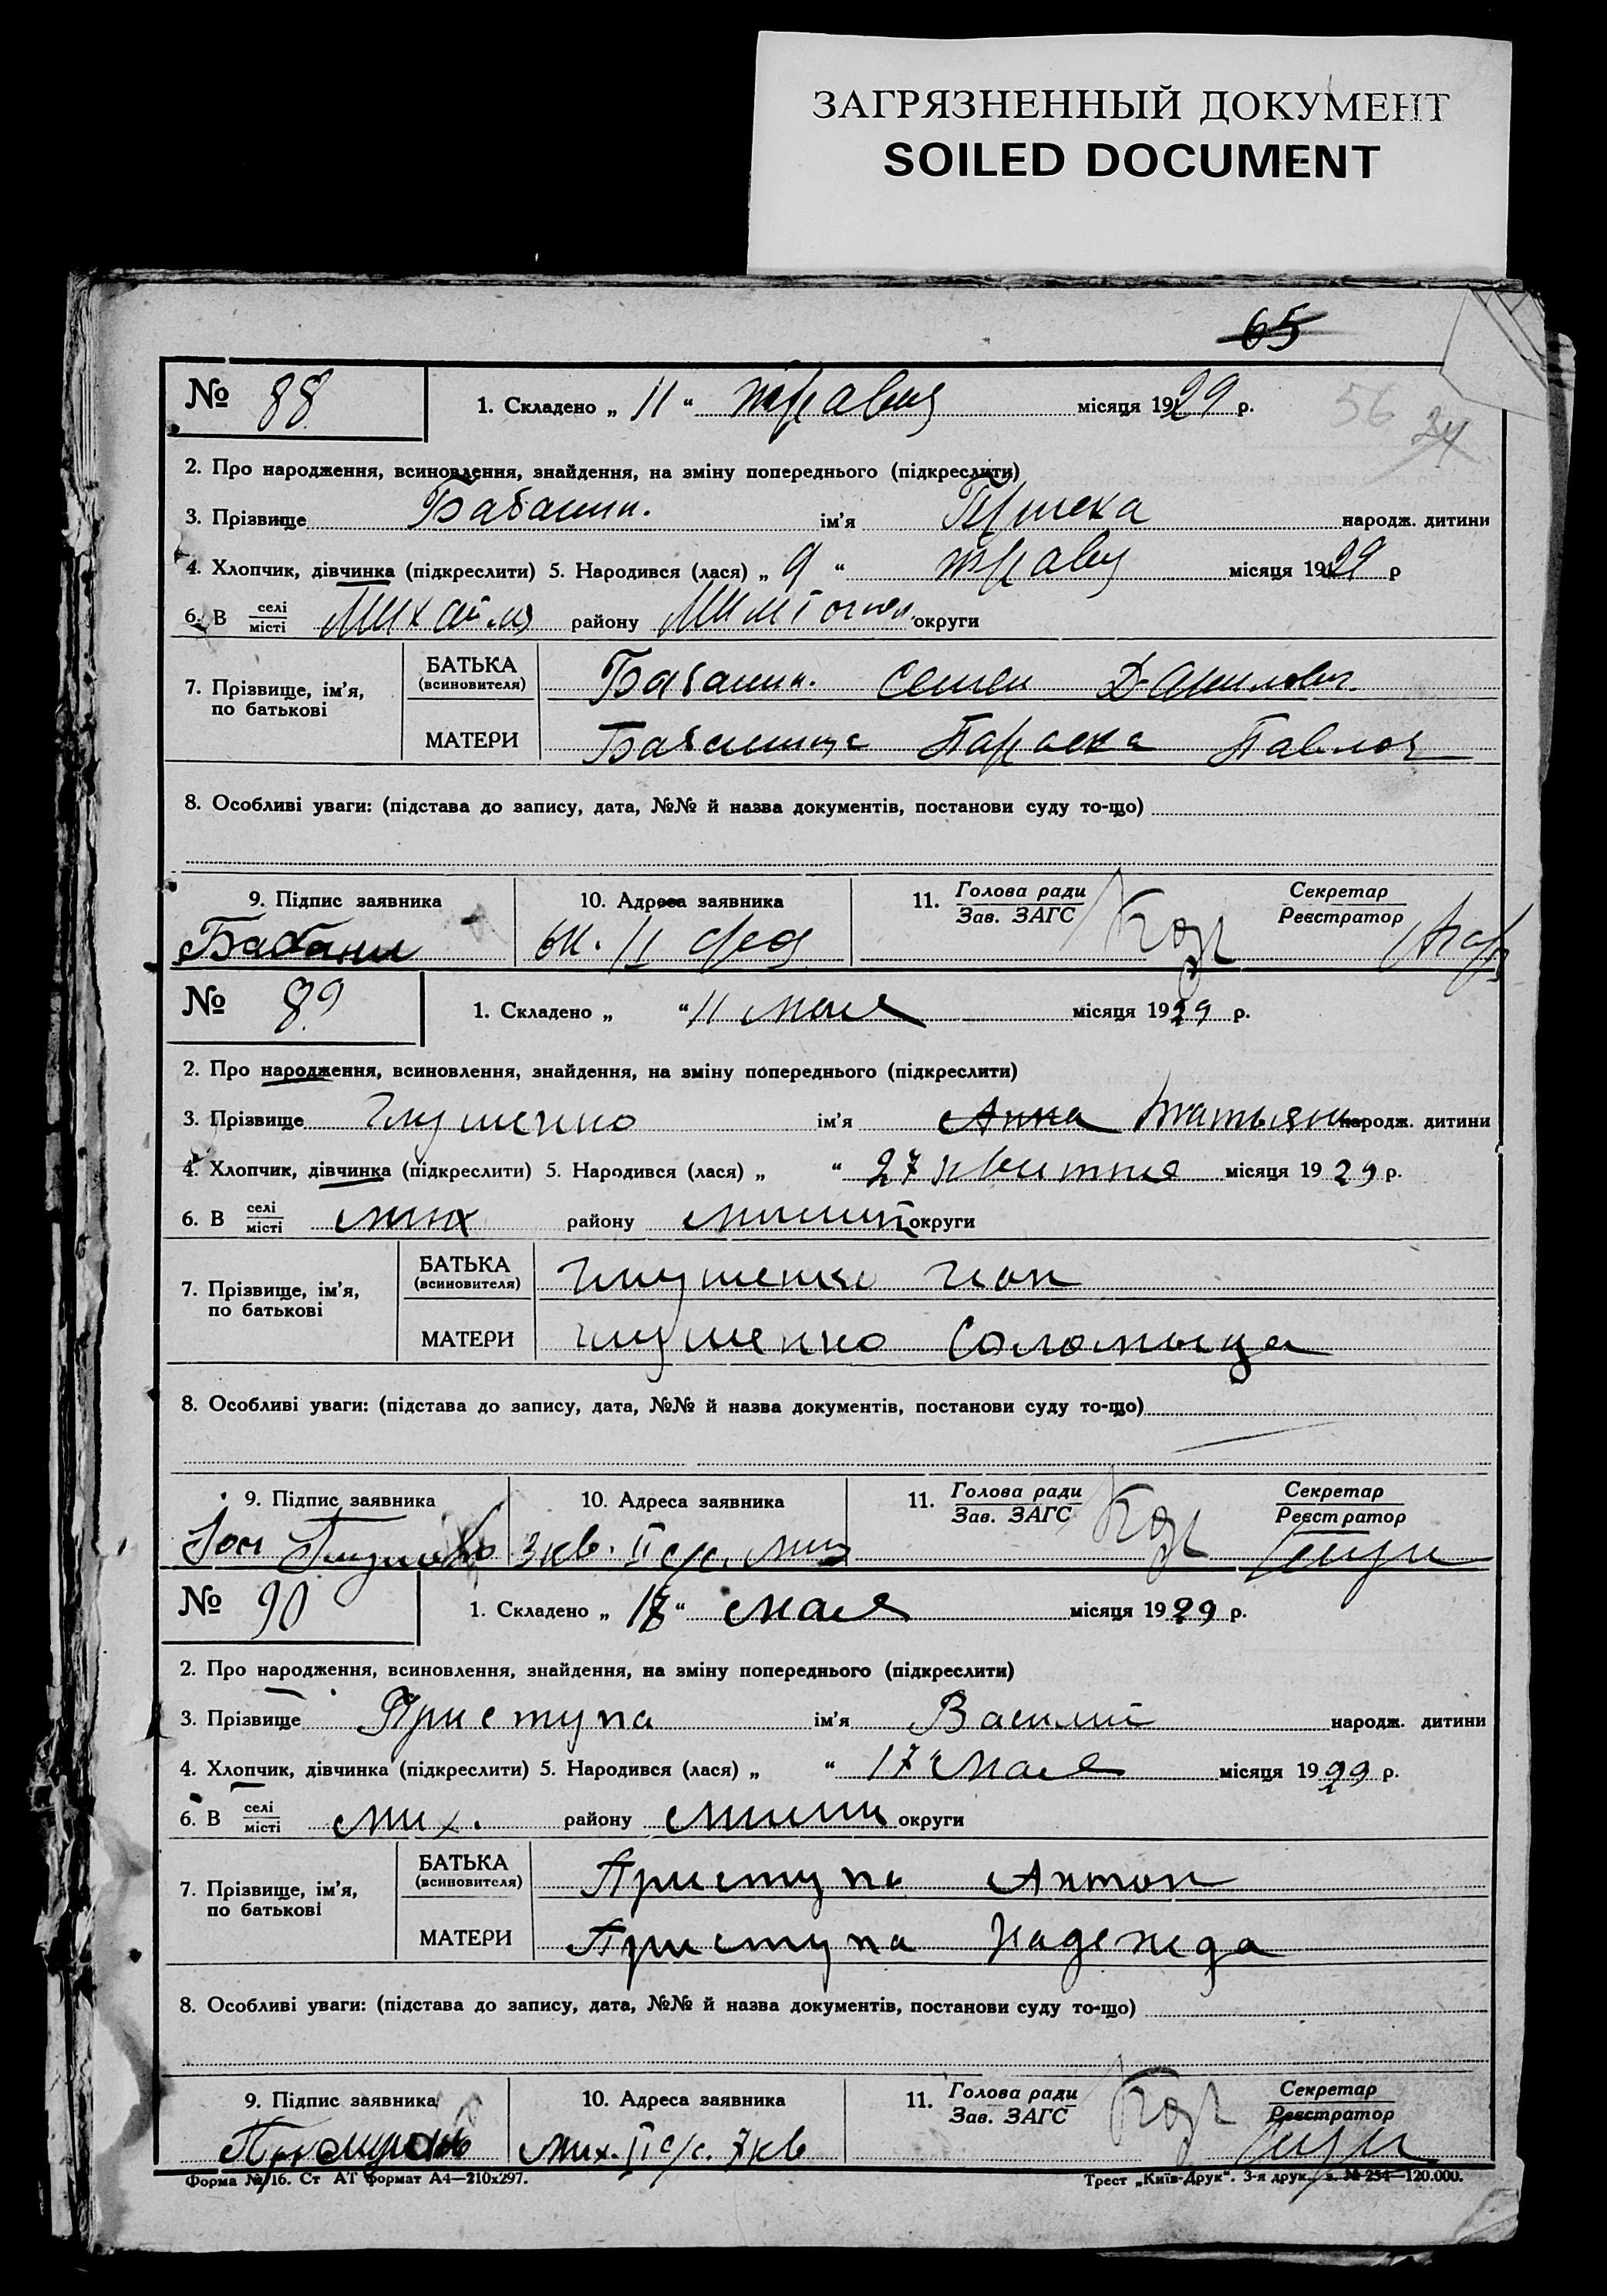 ЗАГРЯЗНЕННЫЙ ДОКУМЕНТ
SOILED DOCUMENT
65
№ 88 1. Складено „ 11 “ травня місяця 1929 р.
56 24
2. Про народження, всиновлення, знайдення, на зміну попереднього (підкреслити)
3. Прізвище Бабанин. ім'я народж. дитини
4. Хлопчик, дівчинка (підкреслити) 5. Народився (лася) „ 9 “ травня місяця 1929 р
6. В селі місті району округи
7. Прізвище, ім'я, по батькові
БАТЬКА (всиновителя) Бабанин. Семен Данилович
МАТЕРИ Параска Павлов
8. Особливі уваги: (підстава до запису, дата, №№ й назва документів, постанови суду то-що)
9. Підпис заявника 10. Адреса заявника 11. Голова ради Зав. ЗАГС Секретар Реєстратор
Бабанин
№ 89 1. Складено „ “ 11 мая місяця 1929 р.
2. Про народження, всиновлення, знайдення, на зміну попереднього (підкреслити)
3. Прізвище Глушенко ім'я Анна Татьяна народж. дитини
4. Хлопчик, дівчинка (підкреслити) 5. Народився (лася) „ “ 27 квитня місяця 1929 р.
6. В селі місті мих району округи
7. Прізвище, ім'я, по батькові
БАТЬКА (всиновителя) Глушенко Ион
МАТЕРИ Глушенко Соломыца
8. Особливі уваги: (підстава до запису, дата, №№ й назва документів, постанови суду то-що)
9. Підпис заявника 10. Адреса заявника 11. Голова ради Зав. ЗАГС Секретар Реєстратор
3 кв. II с/с. мих
№ 90 1. Складено „ 18 “ мая місяця 1929 р.
2. Про народження, всиновлення, знайдення, на зміну попереднього (підкреслити)
3. Прізвище Приступа ім'я Василий народж. дитини
4. Хлопчик, дівчинка (підкреслити) 5. Народився (лася) „ “ 17 мая місяця 1929 р.
6. В селі місті мих. району округи
7. Прізвище, ім'я, по батькові
БАТЬКА (всиновителя) Приступа Антон
МАТЕРИ Приступа Надежда
8. Особливі уваги: (підстава до запису, дата, №№ й назва документів, постанови суду то-що)
9. Підпис заявника 10. Адреса заявника 11. Голова ради Зав. ЗАГС Секретар Реєстратор
мих. II с/с. 7 кв
Форма № 16. Ст АТ формат А4—210х297. Трест „Київ-Друк“. 3-я друк., з. № 254—120.000.